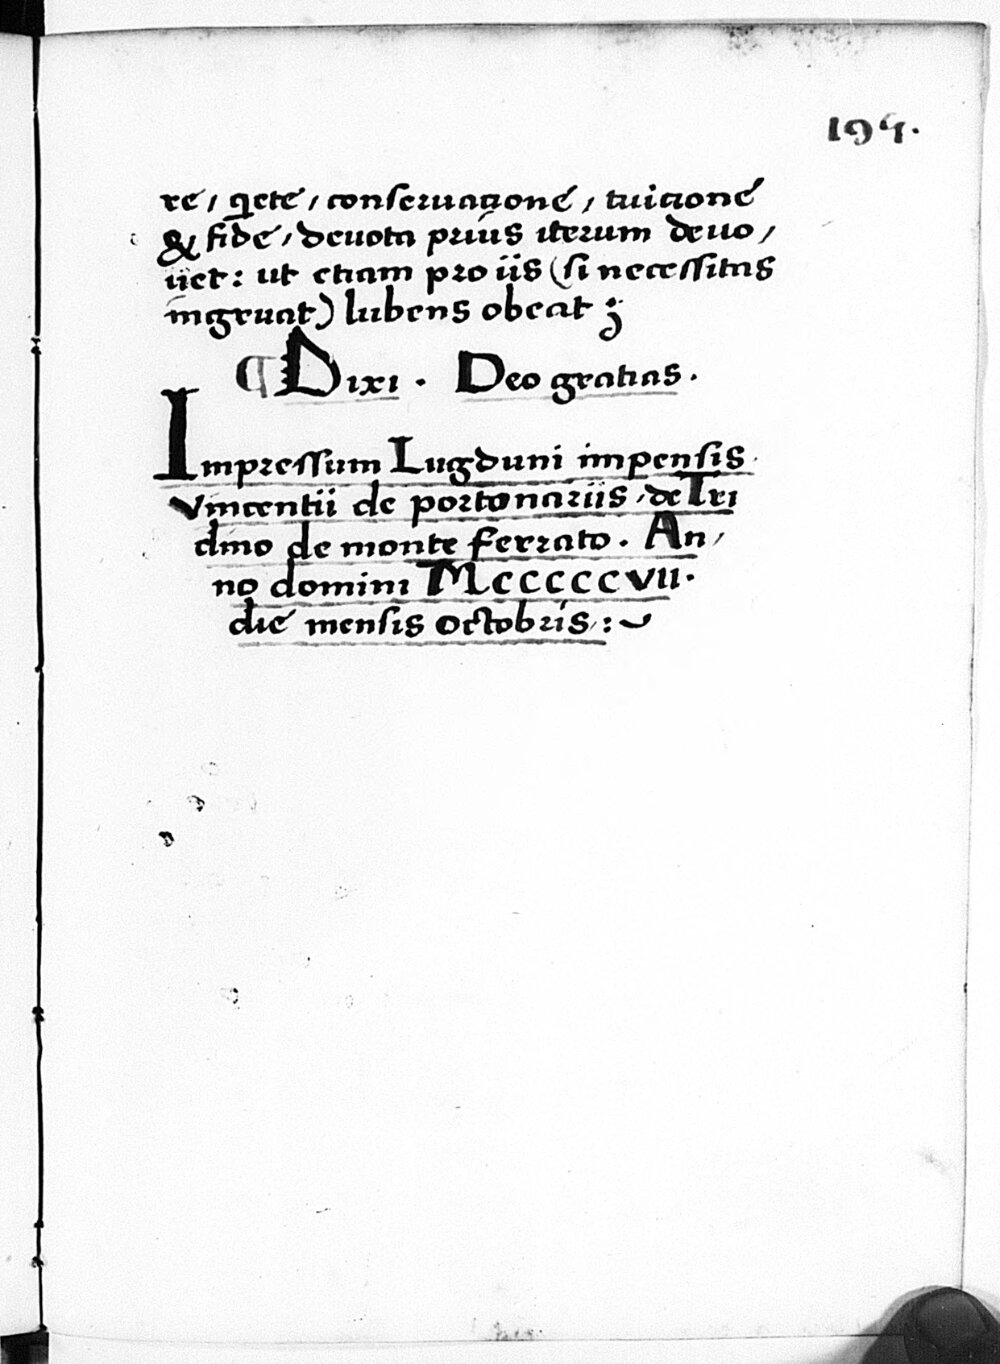 194.
re, q̄ete, conseruationē, tuitionē
& fidē, deuota priús iterum deuo,
uet: ut etiam pro iis (si necessitas
ingruat) lubens obeat ;
¶ Dixi. Deo gratias.
Impressum Lugduni impensis
Vincentii de portonariis, de Tri
dino de monte ferrato. An,
no domini MCCCCCVII.
die mensis octobris,:~